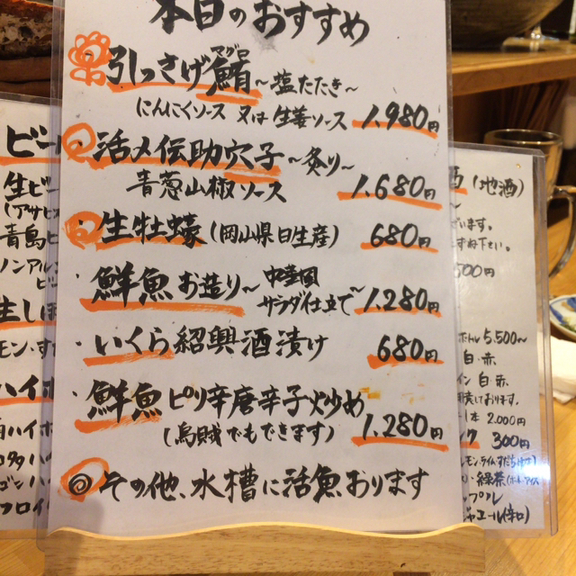 本日のおすすめ
引っさげ鮪 ～塩たたき～
マグロ
にんにくソース 又は 生姜ソース 1,980円
活〆伝助穴子 ～炙り～
青葱山椒ソース 1,680円
・生牡蠣(岡山県日生産) 680円
・鮮魚お造り～中華風
サラダ仕立て～ 1,280円
・いくら紹興酒漬け 680円
・鮮魚ピリ辛唐辛子炒め
(烏賊でもできます) 1,280円
◎その他、水槽に活魚おります
ビー
生ビー
(アサヒ
青島ビ
ノンアル
ビ
生し
モン・す
ハイボ
ハイボ
ゴン ハ
(地酒)
います。
ね下さい。
500円
ボトル 5,500～
白・赤
イン 白・赤
おります。
1本 2,000円
ク 300円
・緑茶
ップル
ジャエール(辛口)